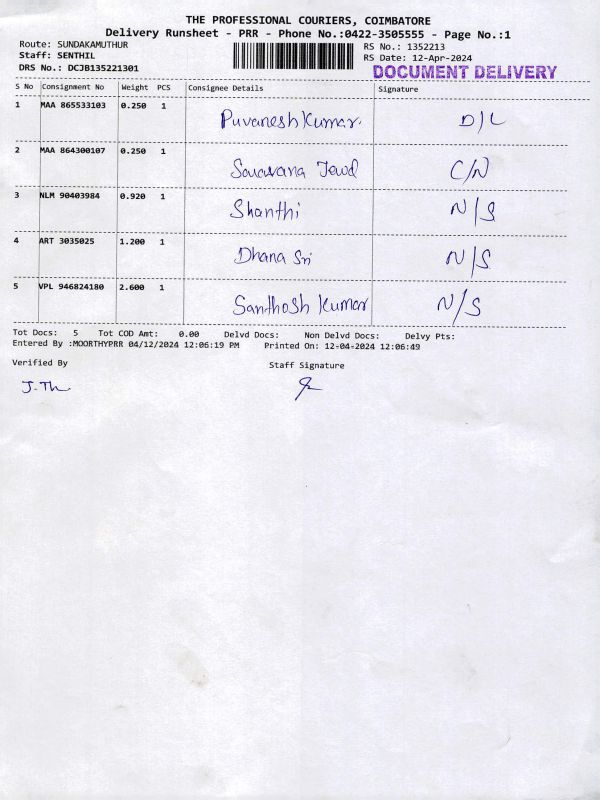 THE PROFESSIONAL COURIERS, COIMBATORE
Delivery Runsheet - PRR - Phone No.:0422-3505555 - Page No.:1
Route: SUNDAKAMUTHUR RS No.: 1352213
Staff: SENTHIL RS Date: 12-Apr-2024
DRS No.: DCJB135221301 DOCUMENT DELIVERY
S No Consignment No Weight PCS Consignee Details Signature
1 MAA 865533103 0.250 1 Puvanesh Kumar. D/L
2 MAA 864300107 0.250 1 C/N
3 NLM 90403984 0.920 1 Shanthi N/S
4 ART 3035025 1.200 1 Dhana Sri N/S
5 VPL 946824180 2.600 1 Santhosh Kumar N/S
Tot Docs: 5 Tot COD Amt: 0.00 Delvd Docs: Non Delvd Docs: Delvy Pts:
Entered By :MOORTHYPRR 04/12/2024 12:06:19 PM Printed On: 12-04-2024 12:06:49
Verified By Staff Signature